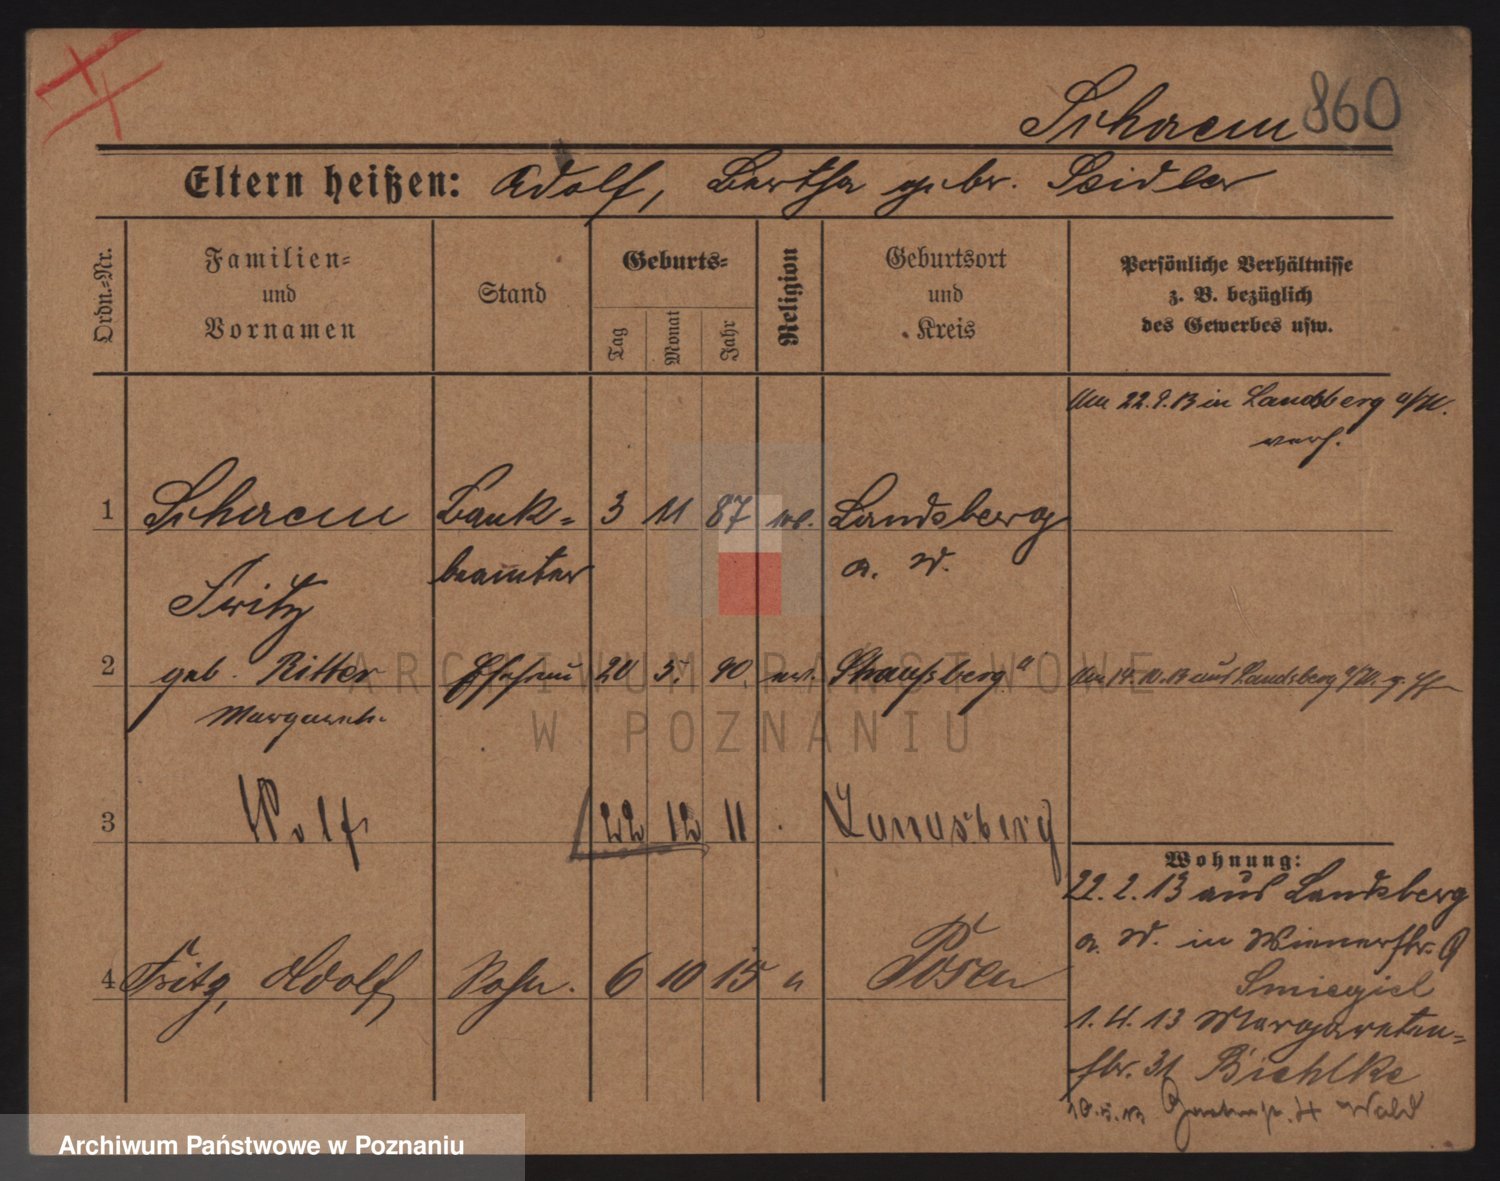 Schacm 860
Eltern heißen: Adolf, Bertha gebr. Seidler
Ordn.-Nr.
Familien-
und
Vornamen
Stand
Geburts-
Tag
Monat
Jahr
Religion
Geburtsort
und
Kreis
Persönliche Verhältnisse
z. B. bezüglich
des Gewerbes usw.
Am 22.2.13 in Landsberg a/W.
verh.
1 Bank- 3 11 87 Landsberg
Fritz beamter a. W.
2 geb. Ritter Ehefrau 20 5. 90. ev.
Margareth.
Am 14.10.13 aus Landsberg a/W.
3 Wolf 22 12 11 Landsberg
Wohnung:
22.2.13 aus Landsberg
a. W. in Wienerstr. 9
Smiegiel
4 Fritz, Adolf Sohn. 6 10 15 " Posen
1.4.13 Margareten-
str. 31 Biehlke
Wald
ARCHIWUM PAŃSTWOWE
W POZNANIU
Archiwum Państwowe w Poznaniu